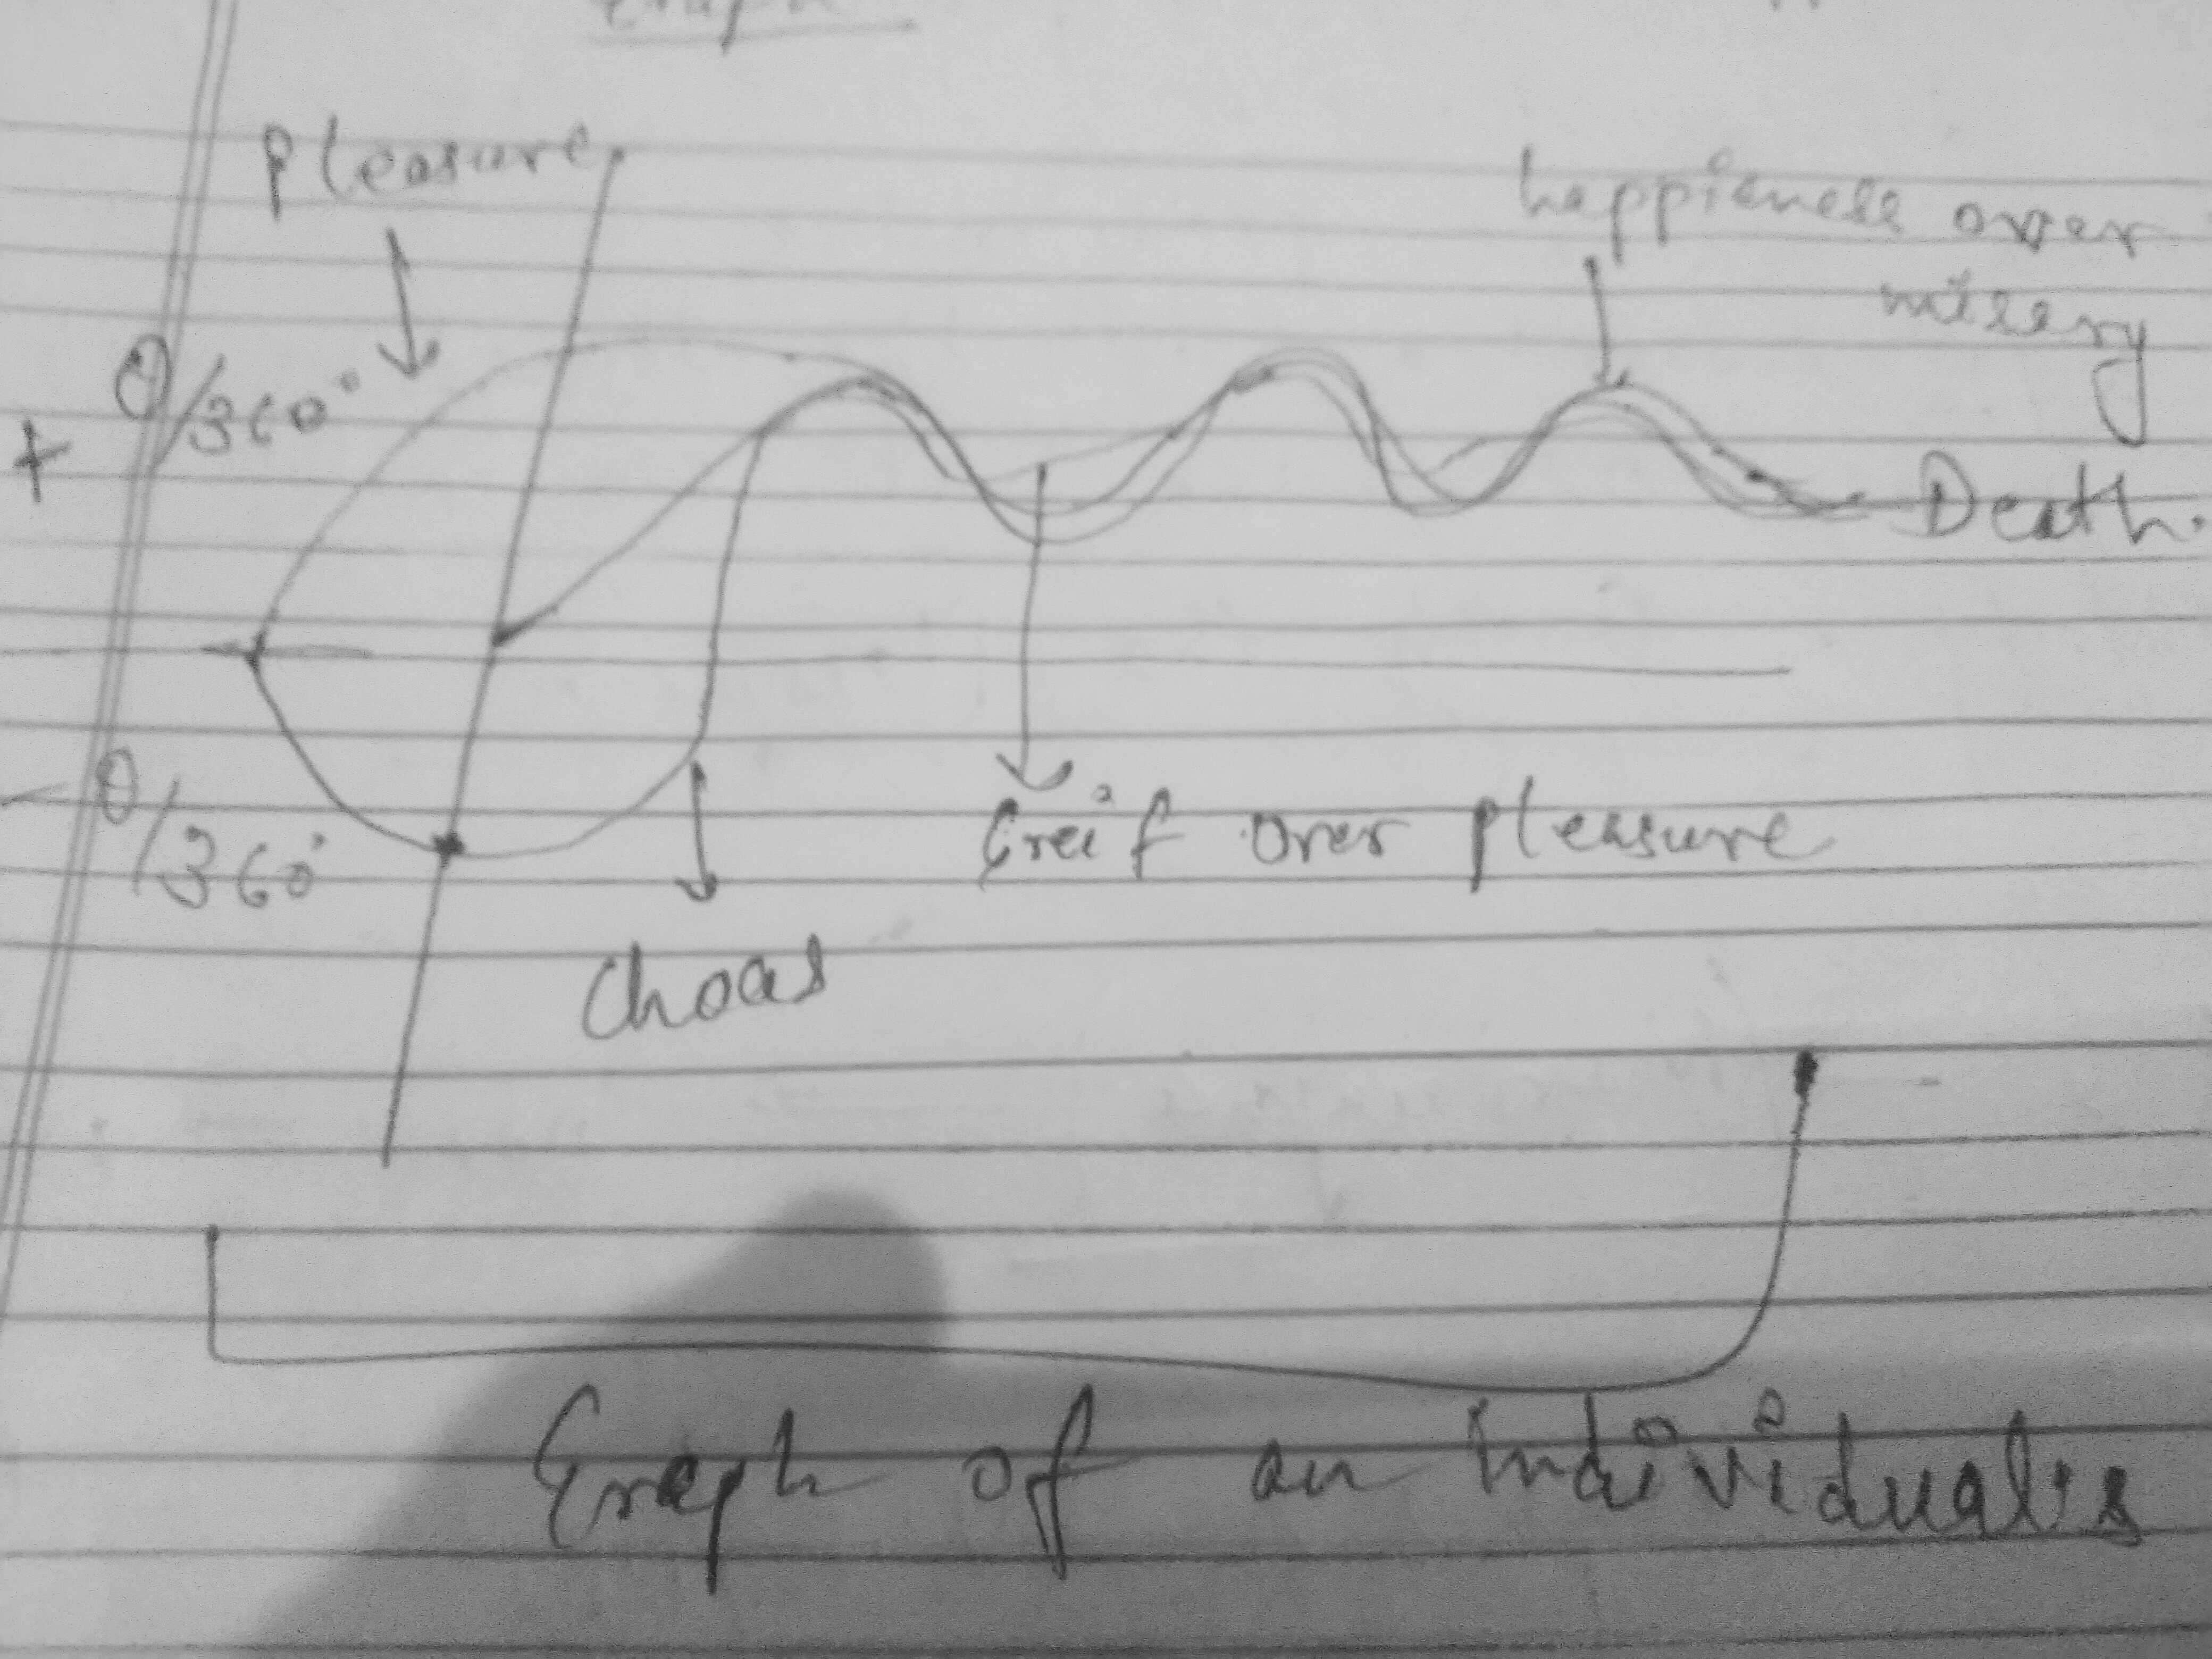 Pleasure
happieness over
misery
+ θ/360°
Death.
- θ/360°
Greif over pleasure
Choas
Graph of an individual's